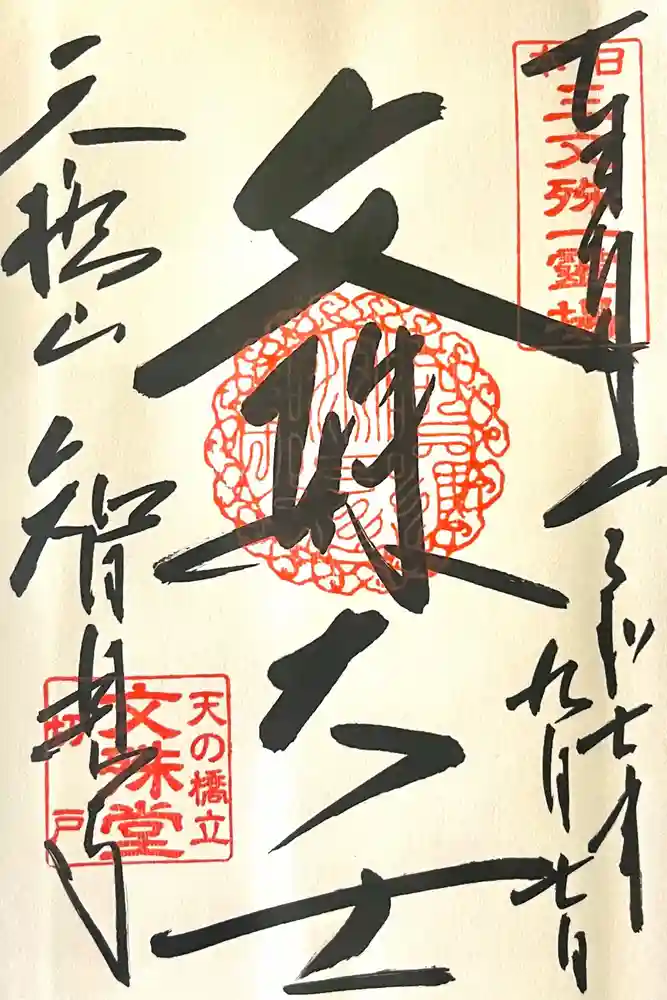 奉拝
日本三文殊一霊場
令和七年
九月七日
文殊大士
天橋山
智恩寺
天の橋立
文殊堂
切戸